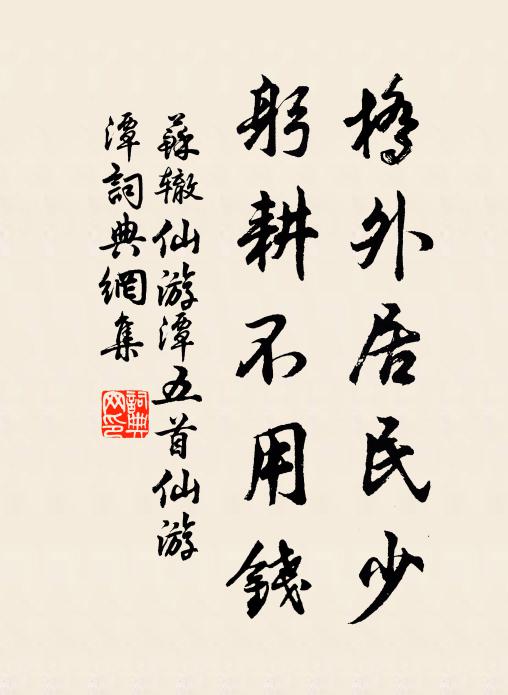 橋外居民少
躬耕不用錢
蘇辙仙游潭五首仙游
潭詞典網集
詞典
网印